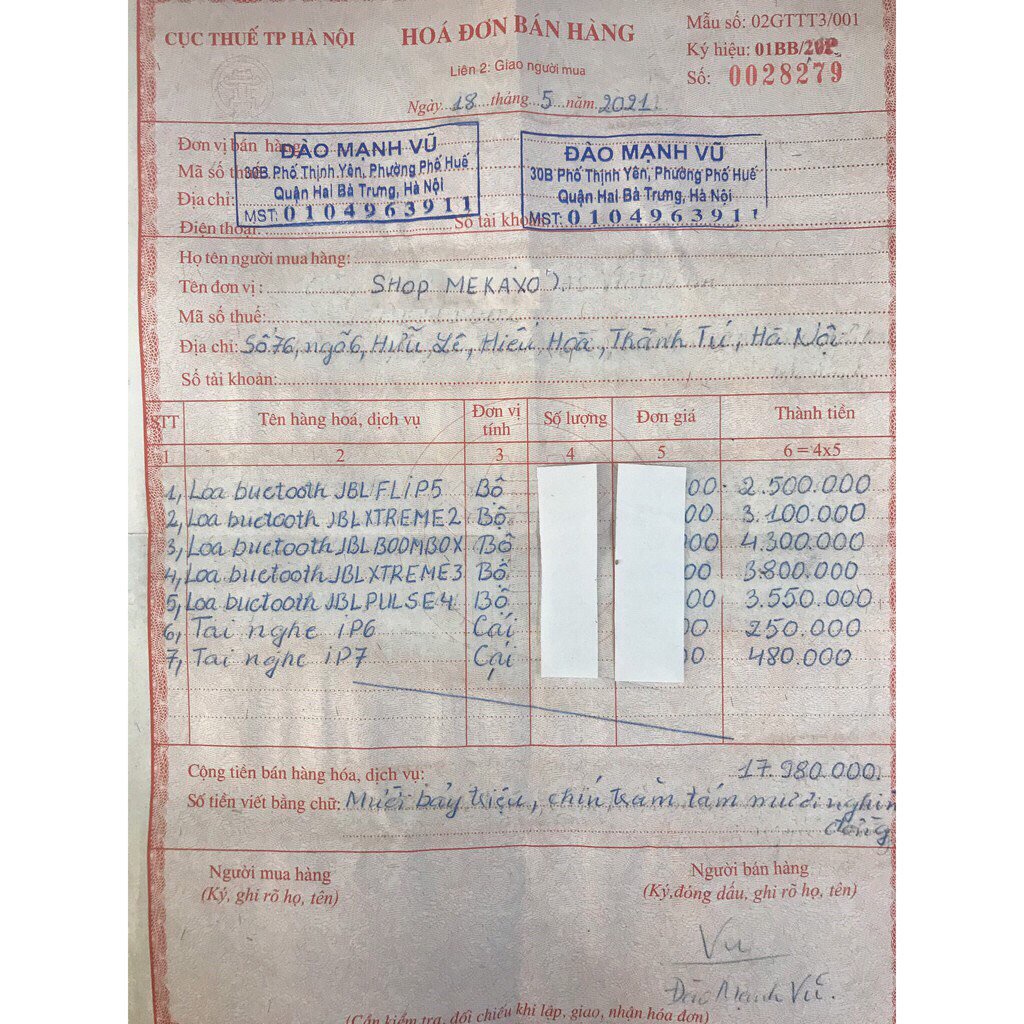 CỤC THUẾ TP HÀ NỘI
HOÁ ĐƠN BÁN HÀNG
Liên 2: Giao người mua
Ngày 18 tháng 5 năm 2021
Mẫu số: 02GTTT3/001
Ký hiệu: 01BB/20P
Số: 0028279
Đơn vị bán hàng
Mã số thuế
Địa chỉ:
Điện thoại:
Số tài khoản
ĐÀO MẠNH VŨ
30B Phố Thịnh Yên, Phường Phố Huế
Quận Hai Bà Trưng, Hà Nội
MST: 0104963911
ĐÀO MẠNH VŨ
30B Phố Thịnh Yên, Phường Phố Huế
Quận Hai Bà Trưng, Hà Nội
MST: 0104963911
Họ tên người mua hàng:
Tên đơn vị: SHOP MEKAXO
Mã số thuế:
Địa chỉ: Số 76, ngõ 6, Hữu Lê, Hiếu Hoà, Thành Tú, Hà Nội
Số tài khoản:
STT Tên hàng hoá, dịch vụ Đơn vị tính Số lượng Đơn giá Thành tiền
1 2 3 4 5 6 = 4x5
1, Loa buctooth JBL FLIP5 Bộ 00 2.500.000
2, Loa buctooth JBL XTREME2 Bộ 00 3.100.000
3, Loa buctooth JBL BOOMBOX Bộ 00 4.300.000
4, Loa buctooth JBL XTREME3 Bộ 00 3.800.000
5, Loa buctooth JBL PULSE4 Bộ 00 3.550.000
6, Tai nghe iP6 Cái 00 250.000
7, Tai nghe iP7 Cái 0 480.000
Cộng tiền bán hàng hóa, dịch vụ: 17.980.000
Số tiền viết bằng chữ: Mười bảy triệu, chín trăm tám mươi nghìn
đồng
Người mua hàng
(Ký, ghi rõ họ, tên)
Người bán hàng
(Ký,đóng dấu, ghi rõ họ, tên)
Vũ
Đào Mạnh Vũ.
(Cần kiểm tra, đối chiếu khi lập, giao, nhận hóa đơn)